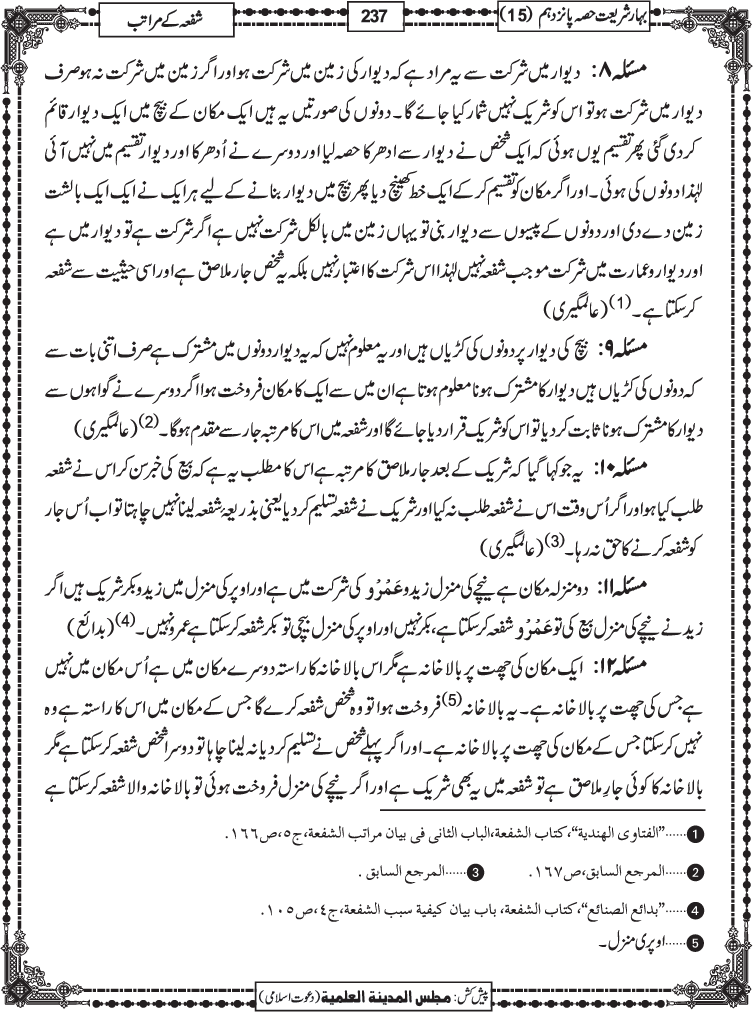 بہار شریعت حصہ پانزدہم (15)
237
شفعہ کے مراتب
مسئلہ ۸: دیوار میں شرکت سے یہ مراد ہے کہ دیوار کی زمین میں شرکت ہو اور اگر زمین میں شرکت نہ ہو صرف
دیوار میں شرکت ہو تو اس کو شریک نہیں شمار کیا جائے گا۔ دونوں کی صورتیں یہ ہیں ایک مکان کے بیچ میں ایک دیوار قائم
کر دی گئی پھر تقسیم یوں ہوئی کہ ایک شخص نے دیوار سے ادھر کا حصہ لیا اور دوسرے نے اُدھر کا اور دیوار تقسیم میں نہیں آئی
لہٰذا دونوں کی ہوئی۔ اور اگر مکان کو تقسیم کر کے ایک خط کھینچ دیا پھر بیچ میں دیوار بنانے کے لیے ہر ایک نے ایک ایک بالشت
زمین دے دی اور دونوں کے پیسوں سے دیوار بنی تو یہاں زمین میں بالکل شرکت نہیں ہے اگر شرکت ہے تو دیوار میں ہے
اور دیوار و عمارت میں شرکت موجب شفعہ نہیں لہٰذا اس شرکت کا اعتبار نہیں بلکہ یہ شخص جار ملاصق ہے اور اسی حیثیت سے شفعہ
کر سکتا ہے۔(1) (عالمگیری)
مسئلہ ۹: بیچ کی دیوار پر دونوں کی کڑیاں ہیں اور یہ معلوم نہیں کہ یہ دیوار دونوں میں مشترک ہے صرف اتنی بات سے
کہ دونوں کی کڑیاں ہیں دیوار کا مشترک ہونا معلوم ہوتا ہے ان میں سے ایک کا مکان فروخت ہوا اگر دوسرے نے گواہوں سے
دیوار کا مشترک ہونا ثابت کر دیا تو اس کو شریک قرار دیا جائے گا اور شفعہ میں اس کا مرتبہ جار سے مقدم ہوگا۔(2) (عالمگیری)
مسئلہ ۱۰: یہ جو کہا گیا کہ شریک کے بعد جار ملاصق کا مرتبہ ہے اس کا مطلب یہ ہے کہ بیع کی خبر سن کر اس نے شفعہ
طلب کیا ہو اور اگر اُس وقت اس نے شفعہ طلب نہ کیا اور شریک نے شفعہ تسلیم کر دیا یعنی بذریعۂ شفعہ لینا نہیں چاہتا تو اب اُس جار
کو شفعہ کرنے کا حق نہ رہا۔(3) (عالمگیری)
مسئلہ ۱۱: دو منزلہ مکان ہے نیچے کی منزل زید و عَمْرْو کی شرکت میں ہے اور اوپر کی منزل میں زید و بکر شریک ہیں اگر
زید نے نیچے کی منزل بیع کی تو عَمْرْو شفعہ کر سکتا ہے، بکر نہیں اور اوپر کی منزل بیچی تو بکر شفعہ کر سکتا ہے عمرو نہیں۔(4) (بدائع)
مسئلہ ۱۲: ایک مکان کی چھت پر بالا خانہ ہے مگر اس بالا خانہ کا راستہ دوسرے مکان میں ہے اُس مکان میں نہیں
ہے جس کی چھت پر بالا خانہ ہے۔ یہ بالا خانہ(5) فروخت ہوا تو وہ شخص شفعہ کرے گا جس کے مکان میں اس کا راستہ ہے وہ
نہیں کر سکتا جس کے مکان کی چھت پر بالا خانہ ہے۔ اور اگر پہلے شخص نے تسلیم کر دیا نہ لینا چاہا تو دوسرا شخص شفعہ کر سکتا ہے مگر
بالا خانہ کا کوئی جارِ ملاصق ہے تو شفعہ میں یہ بھی شریک ہے اور اگر نیچے کی منزل فروخت ہوئی تو بالا خانہ والا شفعہ کر سکتا ہے
1......"الفتاوی الهندیة"، کتاب الشفعة، الباب الثانی فی بیان مراتب الشفعة، ج٥، ص١٦٦.
2......المرجع السابق، ص١٦٧. 3......المرجع السابق.
4......"بدائع الصنائع"، کتاب الشفعة، باب بیان کیفیة سبب الشفعة، ج٤، ص١٠٥.
5......اوپری منزل۔
پیش کش: مجلس المدینة العلمیة (دعوت اسلامی)